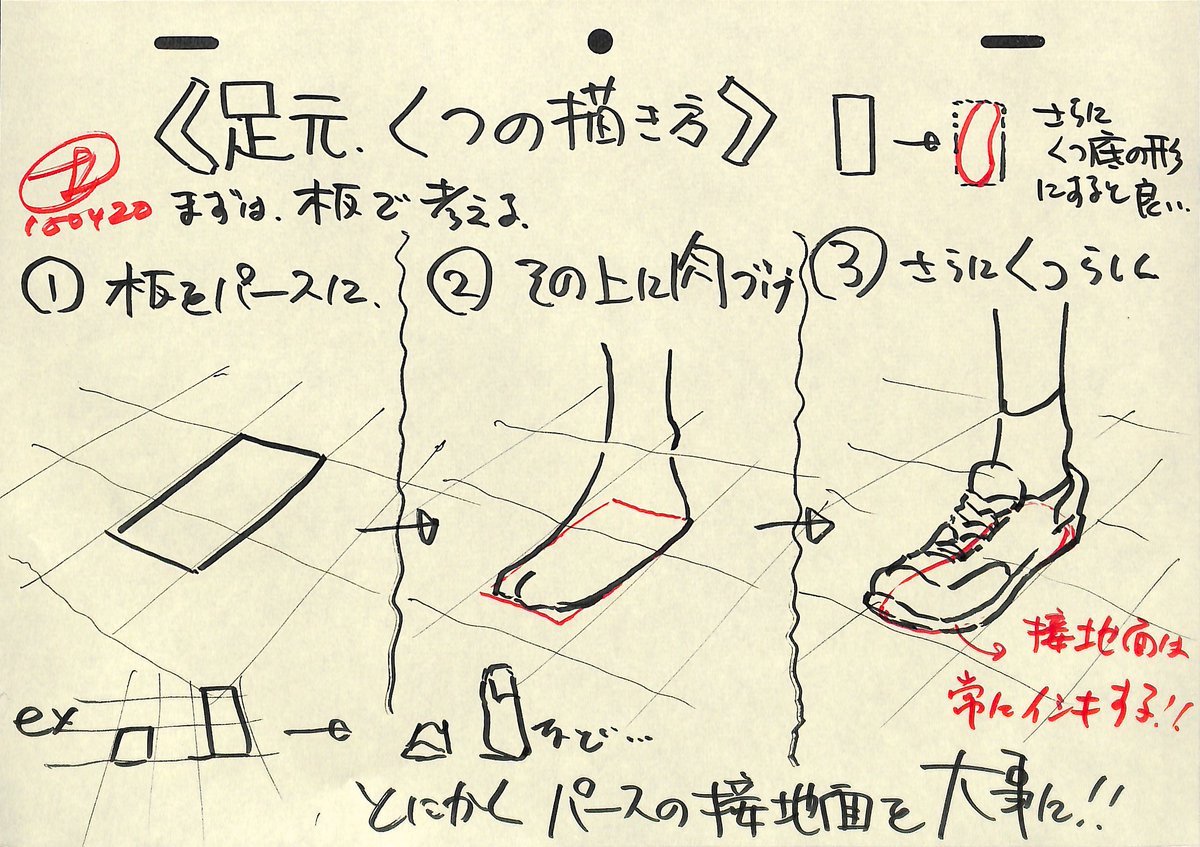 《足元.くつの描き方》
さらに
くつ底の形
にすると良い..
160420
まずは、板で考える。
① 板をパースに、
② その上に肉づけ
③ さらにくつらしく
接地面は
常にイシキする!!
ex
とにかくパースの接地面を大事に!!